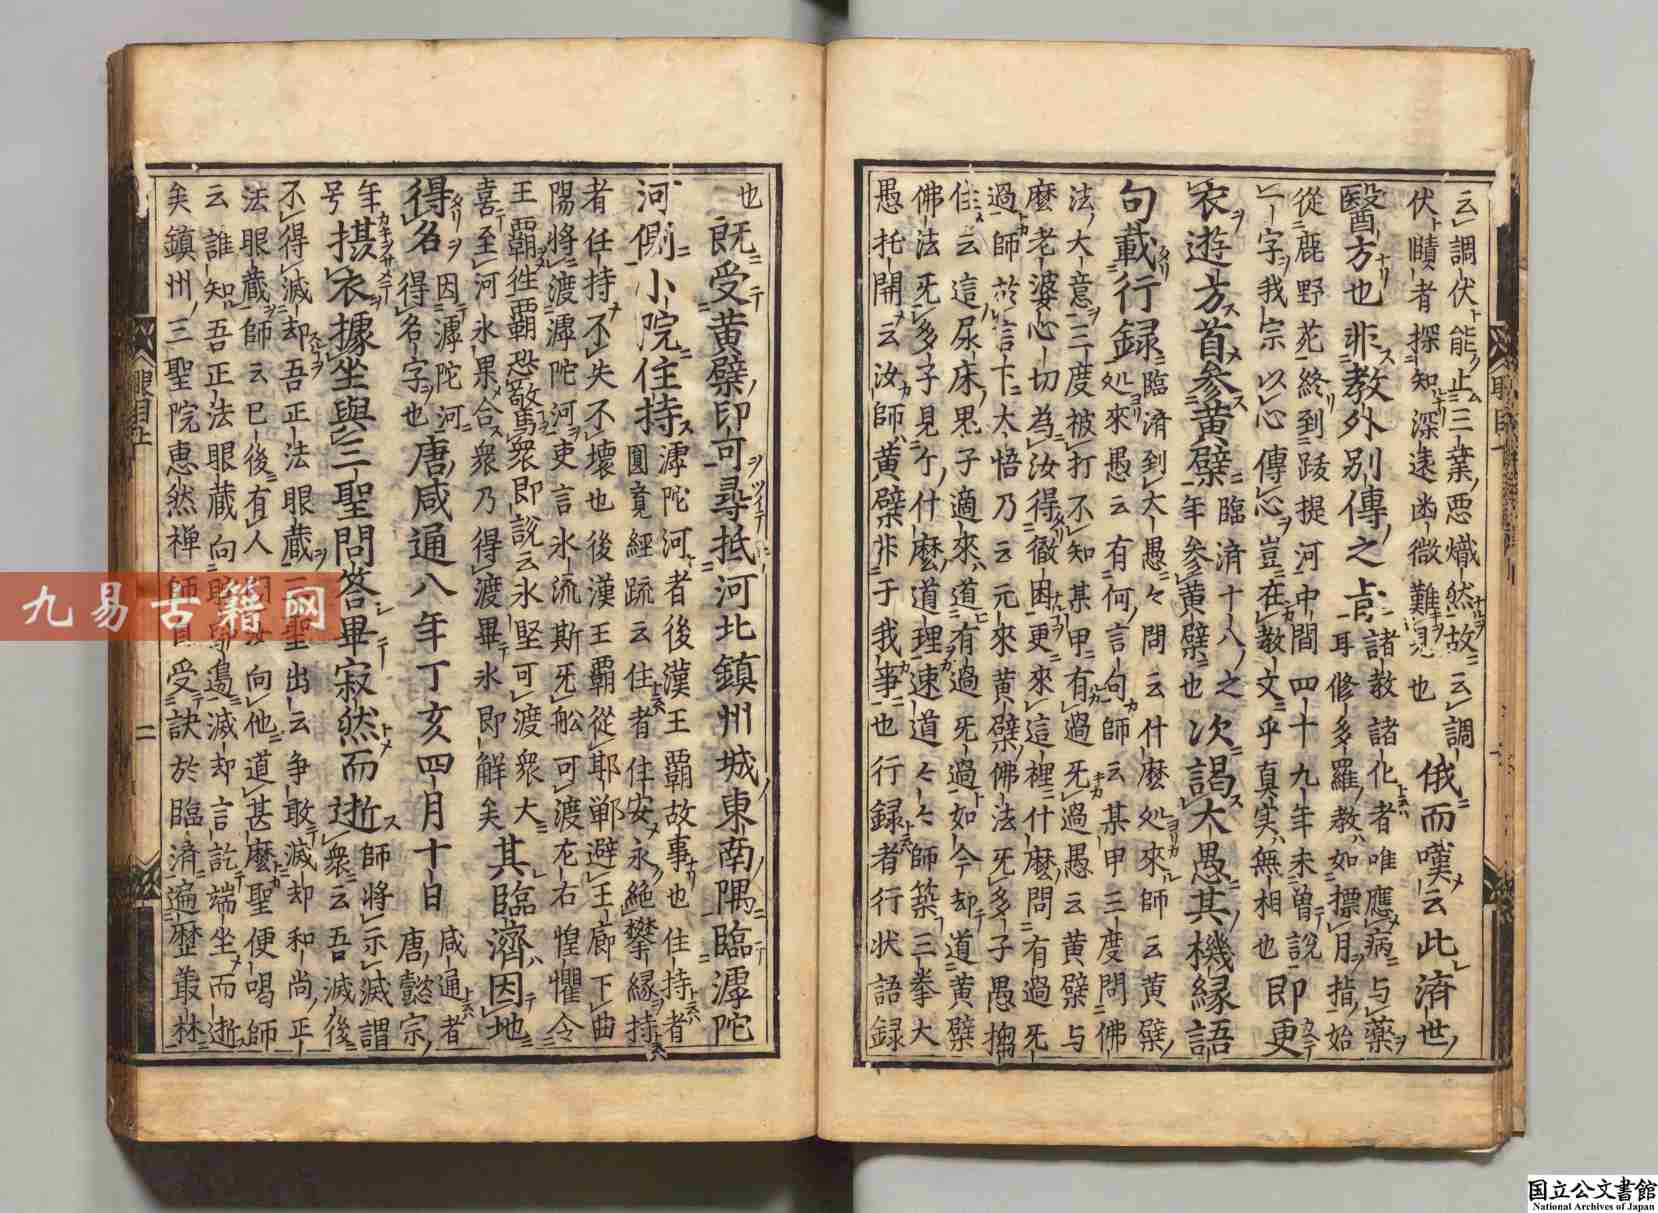 云調伏能止三業悪熾然故云調
伏賾者探知深遠幽微難見也俄而嘆云此済世
醫方也非教外別傳之旨諸教諸化者唯應病与藥
耳修多羅教如標月指始
從鹿野苑終到跋提河中間四十九年未曽說
一字我宗以心傳心豈在教文乎真実無相也即更
衣遊方首参黄檗臨済十八之
年参黄檗也次謁大愚其機縁語
句載行録臨済到大愚々問云什麼処來師云黄檗
処來愚云有何言句師云某甲三度問佛
法大意三度被打不知某甲有過旡過愚云黄檗与
麼老婆心切為汝得徹困更來這裡什麼問有過旡
過師於言下大悟乃云元來黄檗佛法旡多子愚搊
住云這尿床鬼子適來道有過旡過如今却道黄檗
佛法旡多子見个什麼道理速道々々師築三拳大
愚托開云汝師黄檗非于我事也行録者行状語録
也既受黄檗印可尋抵河北鎮州城東南隅臨滹陀
河側小院住持滹陀河者後漢王覇故事也住持者
圓覚經疏云住者住安永絶攀縁持
者任持不失不壊也後漢王覇從耶郸避王廊下曲
陽將渡滹陀河吏言氷流斯旡舩可渡左右惶懼令
王覇徃覇恐敬驚衆即説云氷堅可渡衆大
喜至河氷果合衆乃得渡畢氷即解矣其臨濟因地
得名因滹陀河
得名字也唐咸通八年丁亥四月十日咸通者
唐懿宗
年号攝衣據坐與三聖問答畢寂然而逝師將示滅謂
衆云吾滅後
不得滅却吾正法眼蔵三聖出云争敢滅却和尚正
法眼蔵師云已後有人問汝向他道甚麼聖便喝師
云誰知吾正法眼蔵向瞎驢邊滅却言訖端坐而逝
矣鎮州三聖院恵然禅師自受訣於臨済遍歴叢林
二
九易古籍网
国立公文書館
National Archives of Japan